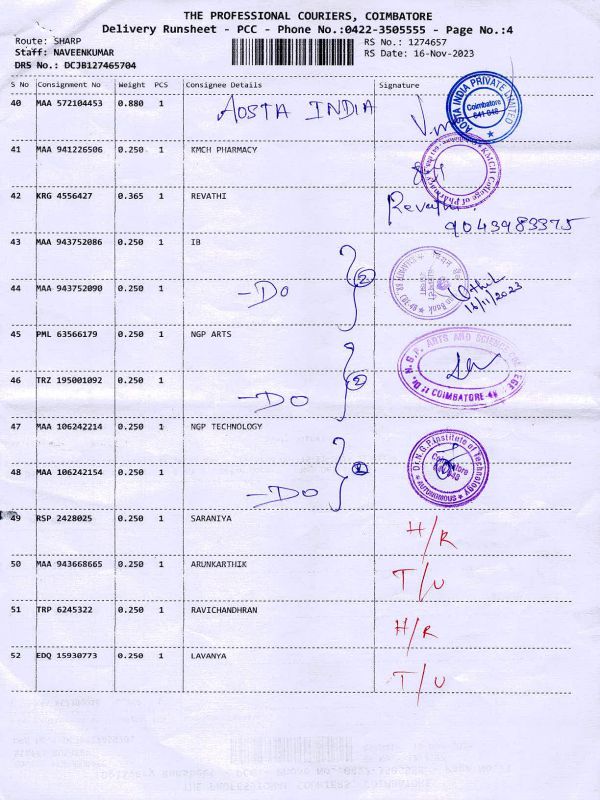 THE PROFESSIONAL COURIERS, COIMBATORE
Delivery Runsheet - PCC - Phone No.:0422-3505555 - Page No.:4
Route: SHARP RS No.: 1274657
Staff: NAVEENKUMAR RS Date: 16-Nov-2023
DRS No.: DCJB127465704
S No Consignment No Weight PCS Consignee Details Signature
40 MAA 572104453 0.880 1 AOSTA INDIA
AOSTA INDIA PRIVATE LIMITED Coimbatore 641 048
41 MAA 941226506 0.250 1 KMCH PHARMACY
KMCH College of Pharmacy
42 KRG 4556427 0.365 1 REVATHI Revathi
9043983375
43 MAA 943752086 0.250 1 IB
44 MAA 943752090 0.250 1 -DO 2
16/11/2023
45 PML 63566179 0.250 1 NGP ARTS
Dr. N.G.P. ARTS AND SCIENCE COLLEGE COIMBATORE-48
46 TRZ 195001092 0.250 1 -DO 2
47 MAA 106242214 0.250 1 NGP TECHNOLOGY
Dr.N.G.P.Institute of Technology Coimbatore 641 048 AUTONOMOUS
48 MAA 106242154 0.250 1 -DO
49 RSP 2428025 0.250 1 SARANIYA H/R
50 MAA 943668665 0.250 1 ARUNKARTHIK T/U
51 TRP 6245322 0.250 1 RAVICHANDHRAN H/R
52 EDQ 15930773 0.250 1 LAVANYA T/U